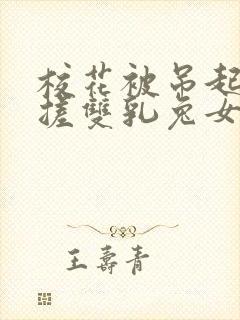 校花被吊起
搓雙乳兔女
王壽青